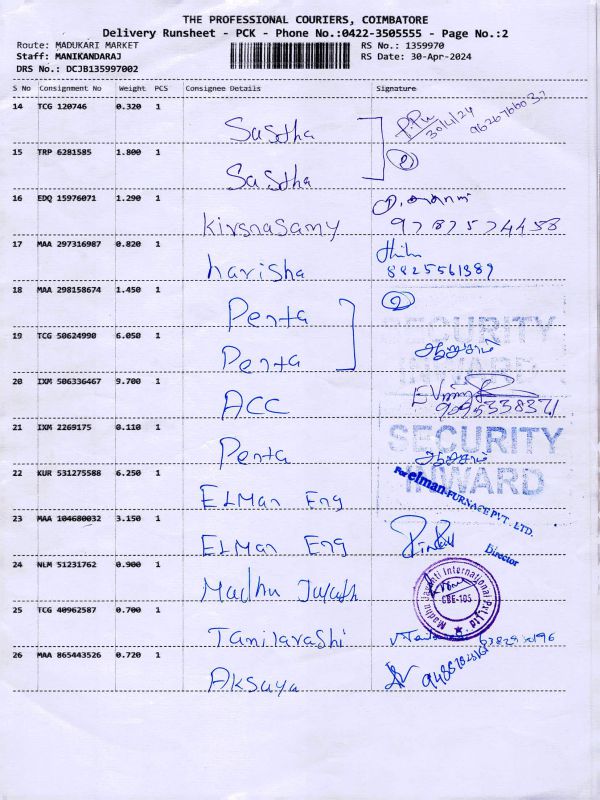 THE PROFESSIONAL COURIERS, COIMBATORE
Delivery Runsheet - PCK - Phone No.:0422-3505555 - Page No.:2
Route: MADUKARI MARKET
RS No.: 1359970
Staff: MANIKANDARAJ
RS Date: 30-Apr-2024
DRS No.: DCJB135997002
S No Consignment No Weight PCS Consignee Details Signature
14 TCG 120746 0.320 1 Sasdha 30/4/24
15 TRP 6281585 1.800 1 Sasdha 2
16 EDQ 15976071 1.290 1 Kirsnasamy 9787574458
17 MAA 297316987 0.820 1 harisha 8825561389
18 MAA 298158674 1.450 1 Penta 2
SECURITY
INWARD
19 TCG 50624990 6.050 1 Penta
20 IXM 506336467 9.700 1 ACC 9095338371
21 IXM 2269175 0.110 1 Penta
SECURITY
INWARD
22 KUR 531275588 6.250 1 ELMan Eng
For elman FURNACE PVT. LTD.
Director
23 MAA 104680032 3.150 1 ELMan Eng
24 NLM 51231762 0.900 1 Madhu
Madhu Jayanti International Pvt. Ltd.
CBE-105
25 TCG 40962587 0.700 1 Tamilarashi
26 MAA 865443526 0.720 1 Aksaya